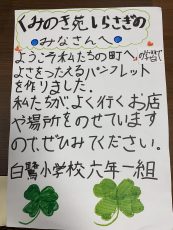 くみのき苑しらさぎの
みなさんへ
ようこそ私たちの町へ
よさをつたえるパンフレット
を作りました。
私たちが、よく行くお店
や場所をのせています
ので、ぜひみてください。
白鷺小学校六年一組